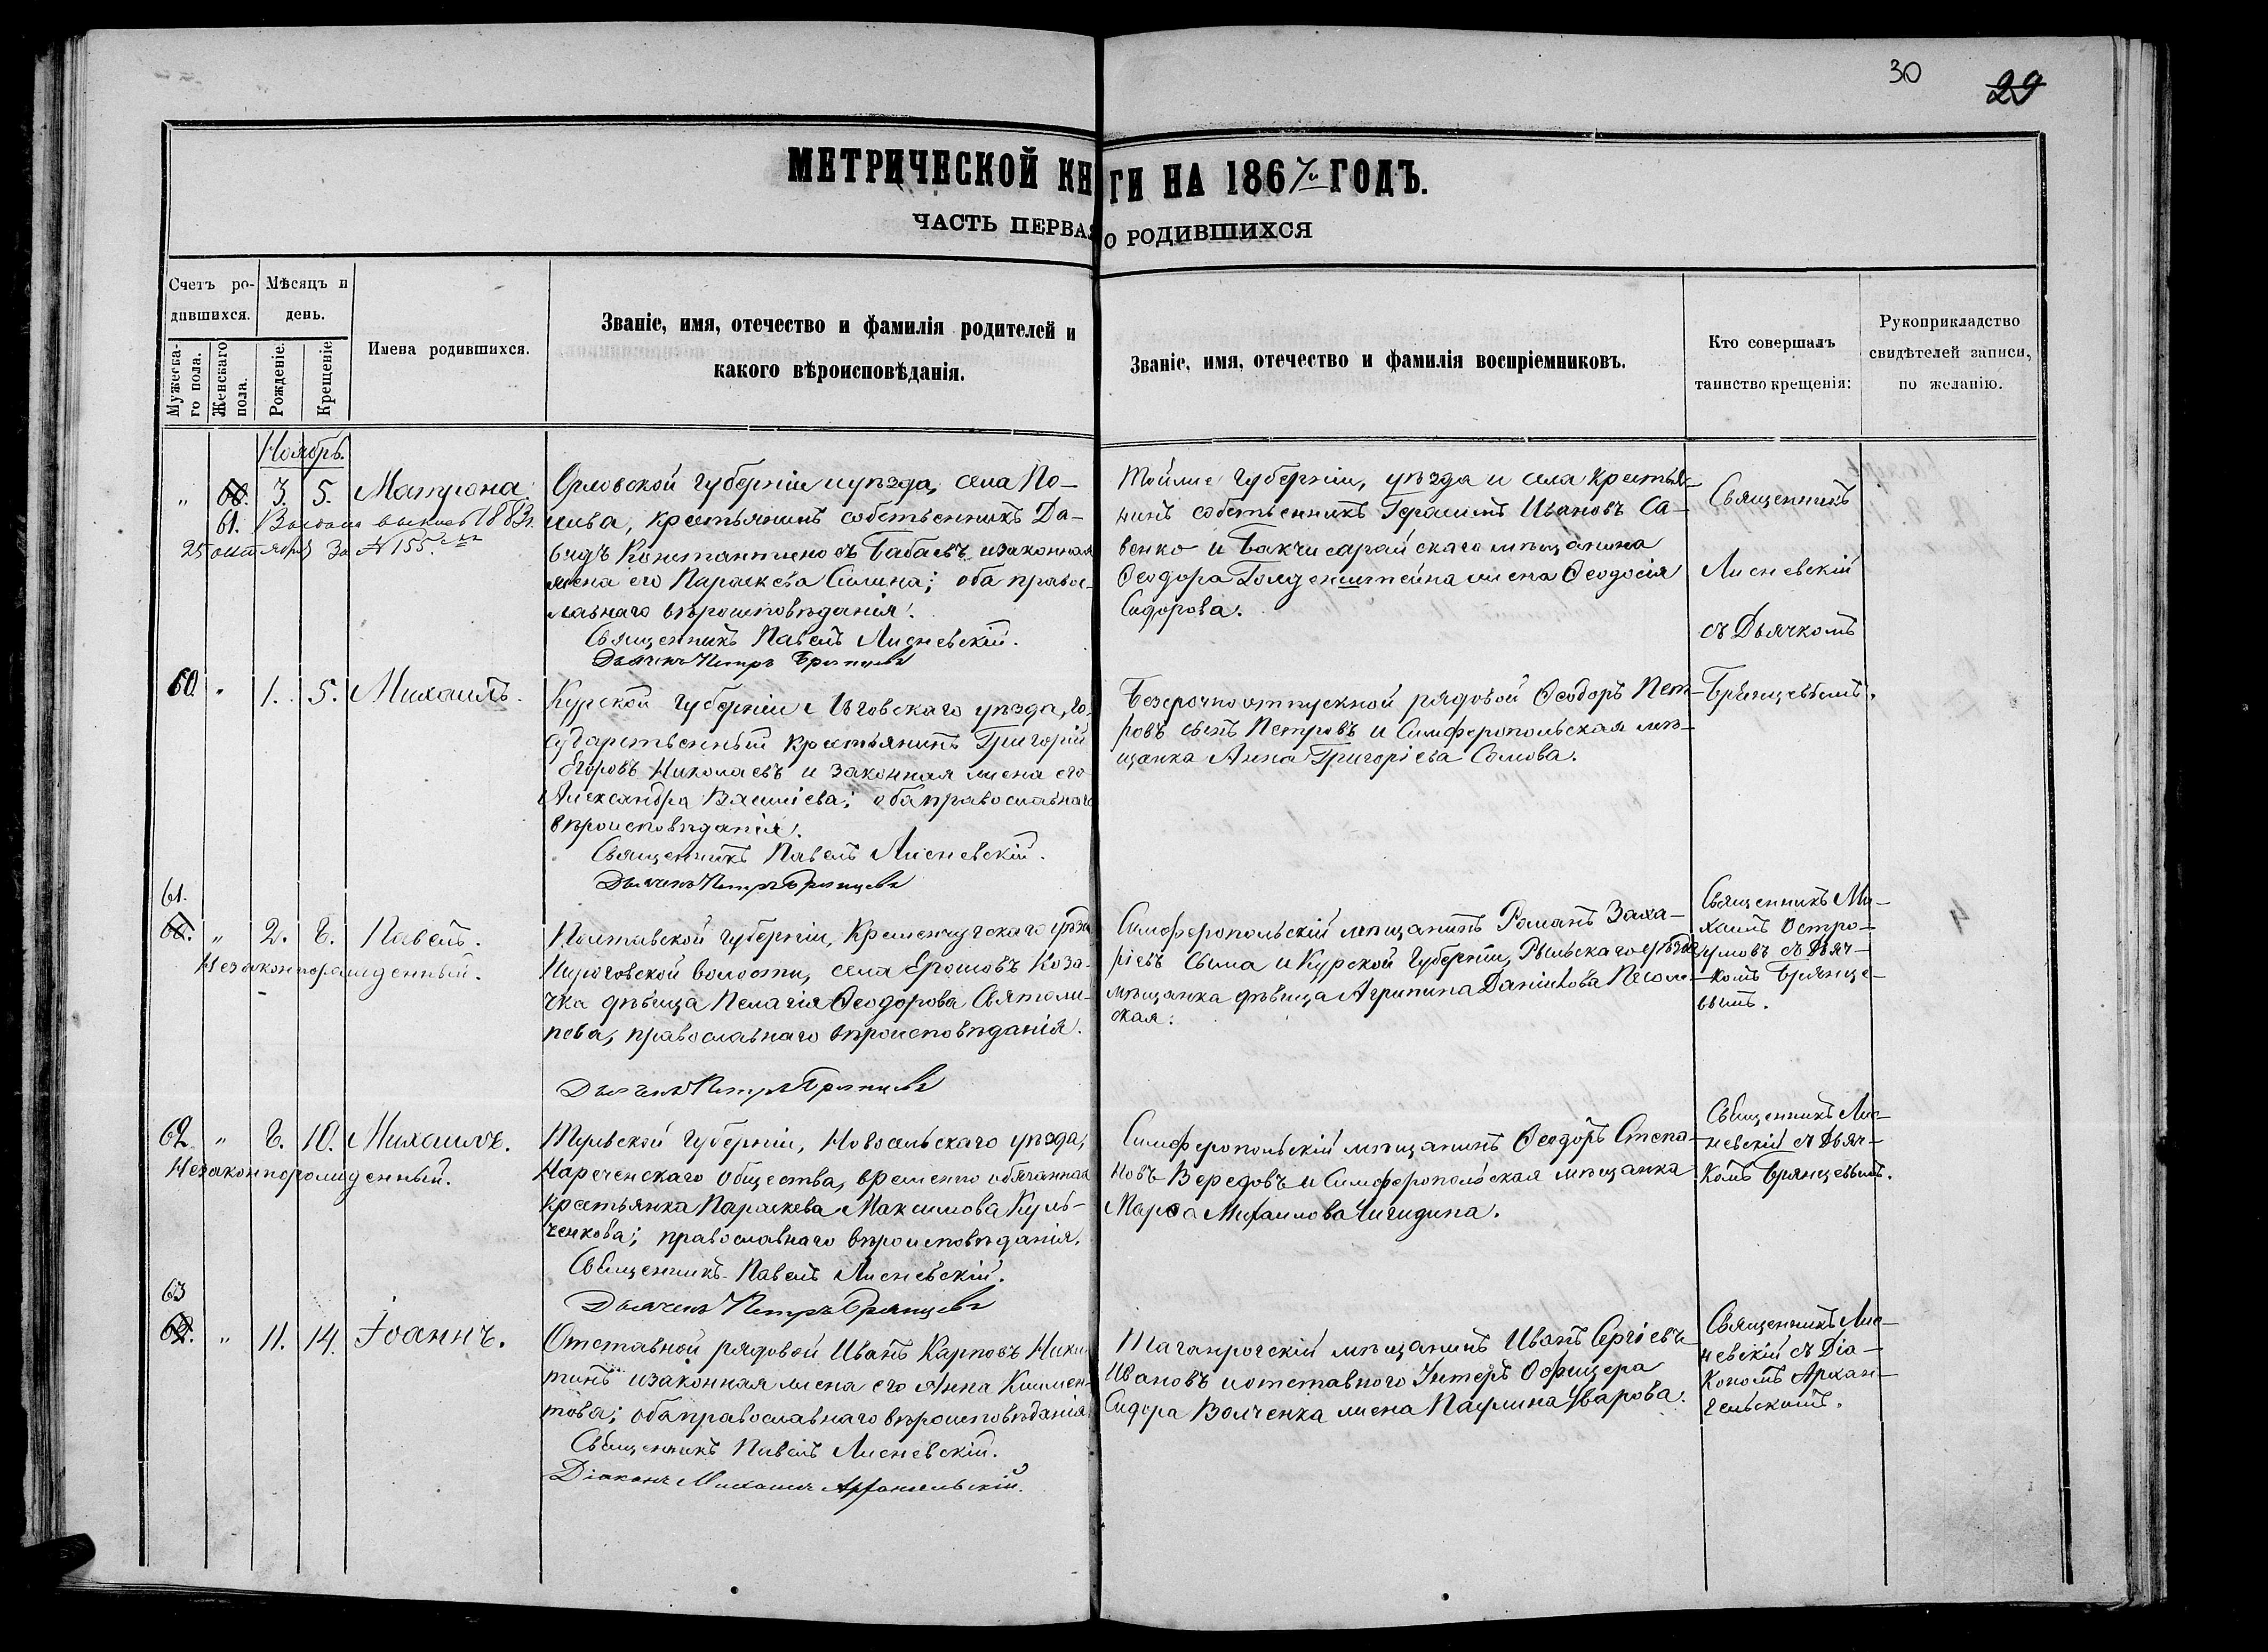 30
29
МЕТРИЧЕСКОЙ КНИГИ НА 1867й ГОДЪ.
ЧАСТЬ ПЕРВАЯ О РОДИВШИХСЯ
Счетъ ро-
дившихся.
Мужеска-
го пола.
Женскаго
пола.
Мѣсяцъ и
день.
Рожденіе.
Крещеніе
Имена родившихся.
Званіе, имя, отечество и фамилія родителей и
какого вѣроисповѣданія.
Званіе, имя, отечество и фамилія воспріемниковъ.
Кто совершалъ
таинство крещенія:
Рукоприкладство
свидѣтелей записи,
по желанію.
Ноябрь.
" 60. 3. 5. Матрона.
61.
25 октября за №155.
Орловской губерніи и уѣзда, села По-
лива, крестьянинъ собственникъ Да-
видъ Константиновъ Бабаевъ и законная
жена его Параскева Сілина; оба правос-
лавнаго вѣроисповѣданія.
Священникъ Павелъ Лисневскій.
Дьячекъ Петръ Брянцевъ
Тойже губерніи, уѣзда и села крестья-
нинъ собственникъ Герасимъ Ивановъ Са-
венко и Бакчисарайскаго мѣщанина
Ѳеодора Голденштейна жена Ѳеодосія
Сидорова.
Священникъ
Лисневскій
съ Дьячкомъ
Брянцевымъ.
60 " 1. 5. Михаилъ.
Курской губерніи Льговскаго уѣзда, го-
сударственный крестьянинъ Григорій
Егоровъ Николаевъ и законная жена его
Александра Василіева; оба православнаго
вѣроисповѣданія.
Священникъ Павелъ Лисневскій.
Дьячекъ Петръ Брянцевъ
Безсрочноотпускной рядовой Ѳеодоръ Пет-
ровъ сынъ Петровъ и Симферопольская мѣ-
щанка Анна Григоріева Сомова.
61.
60. " 2. 8. Павелъ.
Незаконнорожденный.
Полтавской губерніи, Кременчугскаго уѣзда
Пироговской волости, села Ерошовъ Коза-
чка дѣвица Пелагія Ѳеодорова Святоли-
пова, православнаго вѣроисповѣданія.
Дьячекъ Петръ Брянцевъ
Симферопольскій мѣщанинъ Романъ Заха-
ріевъ Сыма и Курской Губерніи, Рыльскаго уѣзда
мѣщанка дѣвица Агрипина Данілова
ская.
Священникъ Ми-
хаилъ Остро-
умовъ съ Дьяч-
комъ Брянце-
вымъ.
62 " 8. 10. Михаилъ.
Незаконнорожденный.
Тульской Губерніи, Новосельскаго уѣзда,
Нареченскаго общества, временно обязанная
крестьянка Параскева Максимова Куль-
ченкова; православнаго вѣроисповѣданія.
Священникъ Павелъ Лисневскій.
Дьячекъ Петръ Брянцевъ
Симферопольскій мѣщанинъ Ѳеодоръ Степа-
новъ Вередовъ и Симферопольская мѣщанка
Марѳа Михаилова Чигидина.
Священникъ Лис-
невскій съ Дьяч-
комъ Брянцевымъ.
63
62. " 11. 14. Іоаннъ.
Отставной рядовой Иванъ Карповъ Ники-
тинъ и законная жена его Анна Климен-
това; оба православнаго вѣроисповѣданія
Священникъ Павелъ Лисневскій.
Діаконъ Михаилъ Архангельскій.
Таганрогскій мѣщанинъ Иванъ Сергіевъ
Ивановъ и отставного Унтеръ Офицера
Сидора Волченка жена Паулина Уварова.
Священникъ Лис-
невскій съ Діа-
кономъ Архан-
гельскимъ.